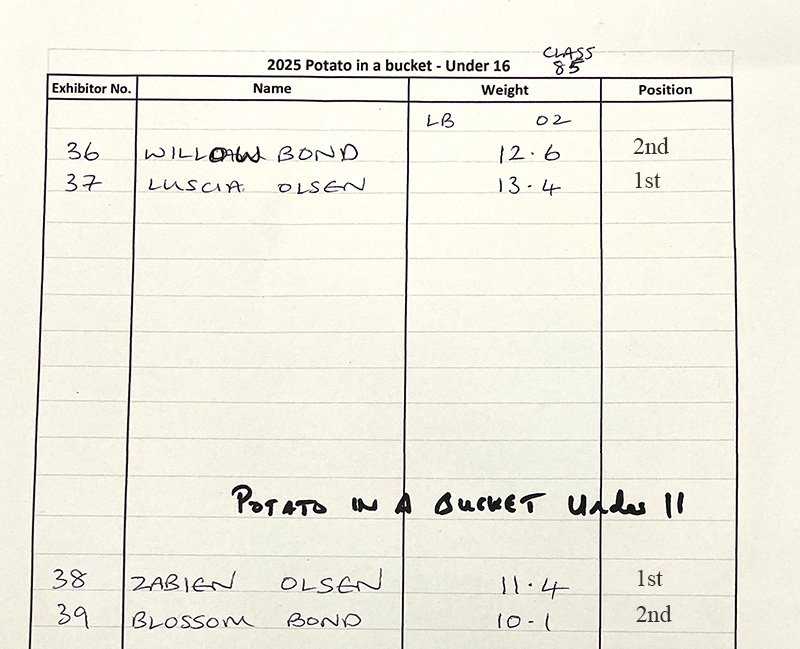 CLASS
2025 Potato in a bucket - Under 16 85
Exhibitor No. Name Weight Position
LB OZ
36 WILLOW BOND 12.6 2nd
37 LUSCIA OLSEN 13.4 1st
POTATO IN A BUCKET Under 11
38 ZABIEN OLSEN 11.4 1st
39 BLOSSOM BOND 10-1 2nd